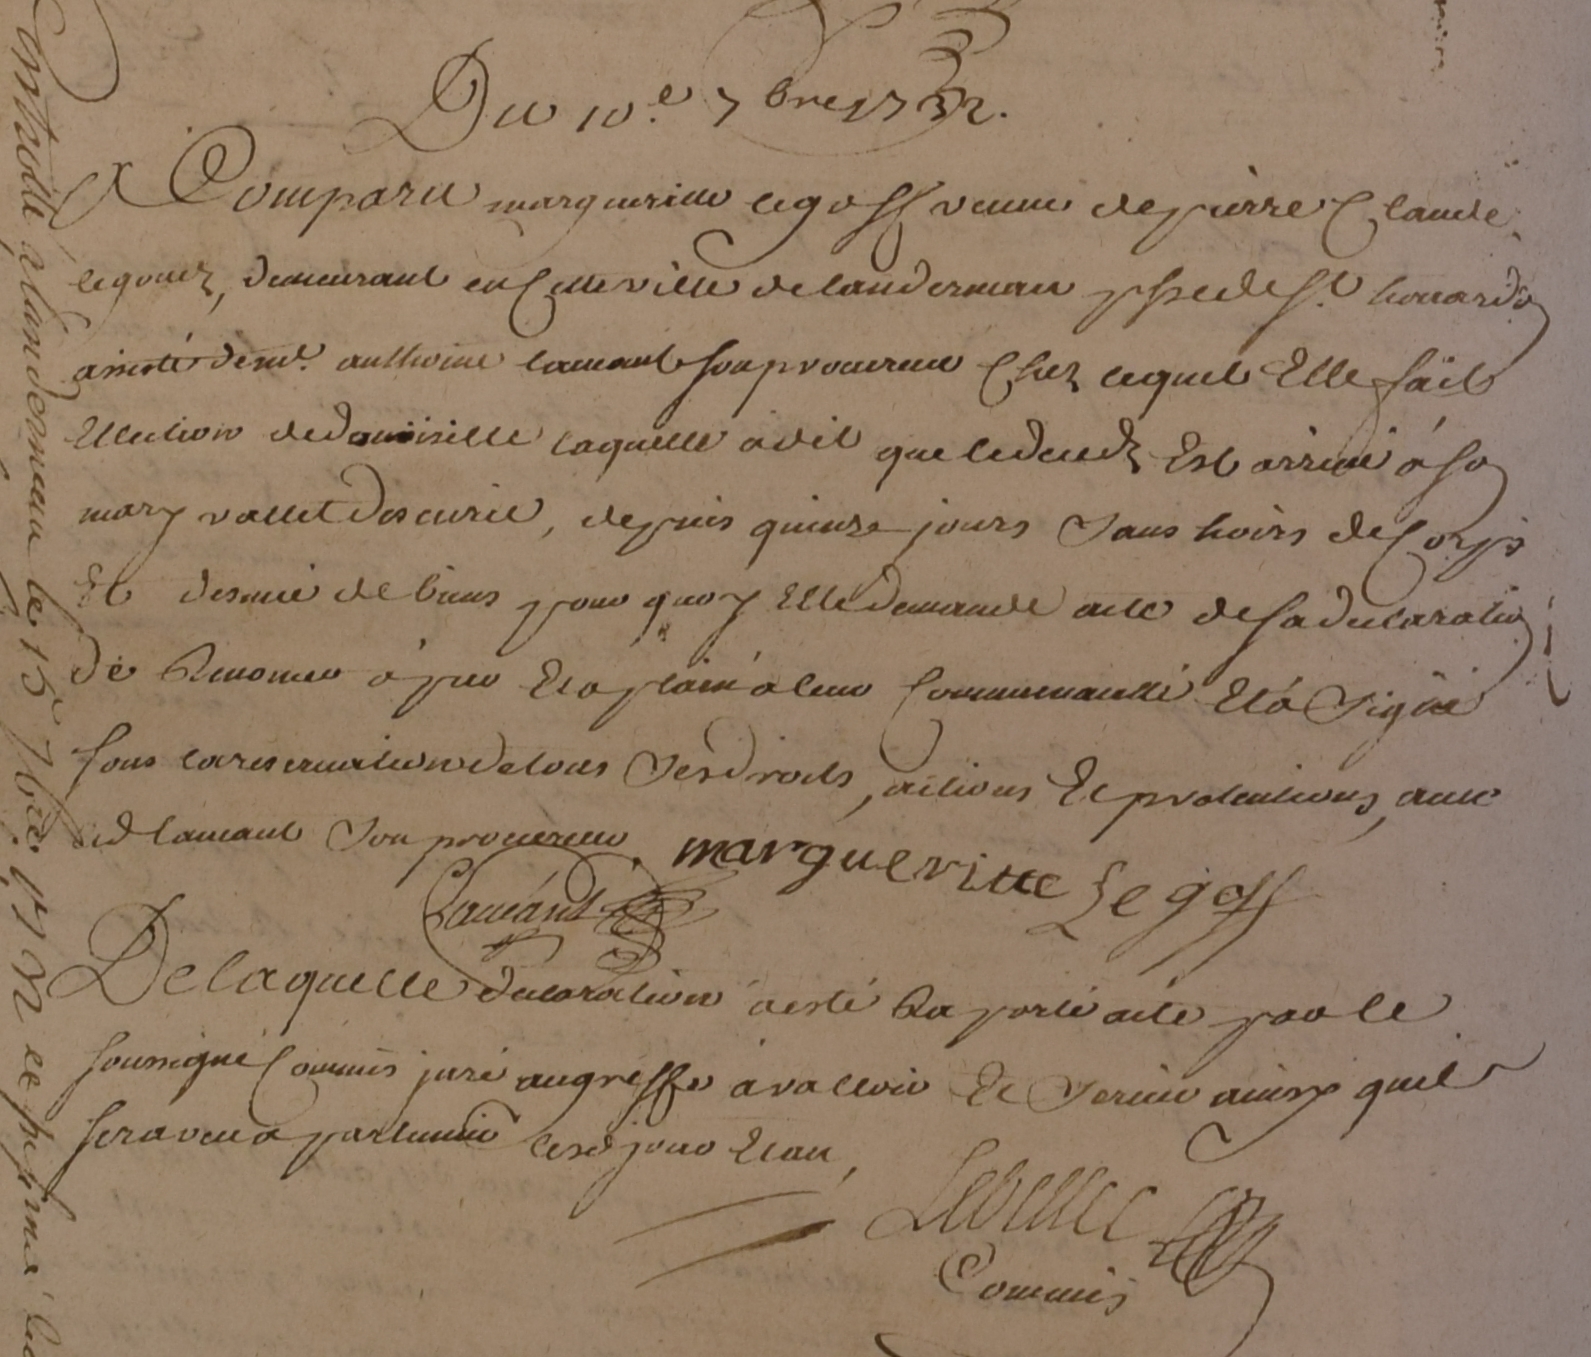 Du 10.e 7bre 1732.
Comparu margueritte legoff veuve de pierre Claude
legouez, demeurant en Cette ville de landerneau psse de St. houardo
assisté de me. anthoine lamant son procureur Chez lequel Elle fait
Ellection de domicille laquelle a dit que le deceds Est arrivé a so
mary vallet descurie, depuis quinze jours sans hoirs de Corps
Et desnué de biens pour quoy Elle demande acte de sa declaratio
de Renoncer a pur Et a plain a leur Communauté Et a Signé
sous la reservation de tous Ses droits, actions Et pretentions, avec
led lamant Son procureur. margueritte Le goff
Lamant
De laquelle declaration a esté Raporté acte par le
soussigné Commis juré au greffe a valloir Et Servir ainsy quil
sera veu apartenir lesd jour Et an,
Commis
Controllé a landerneau le 15e 7bre. 1732